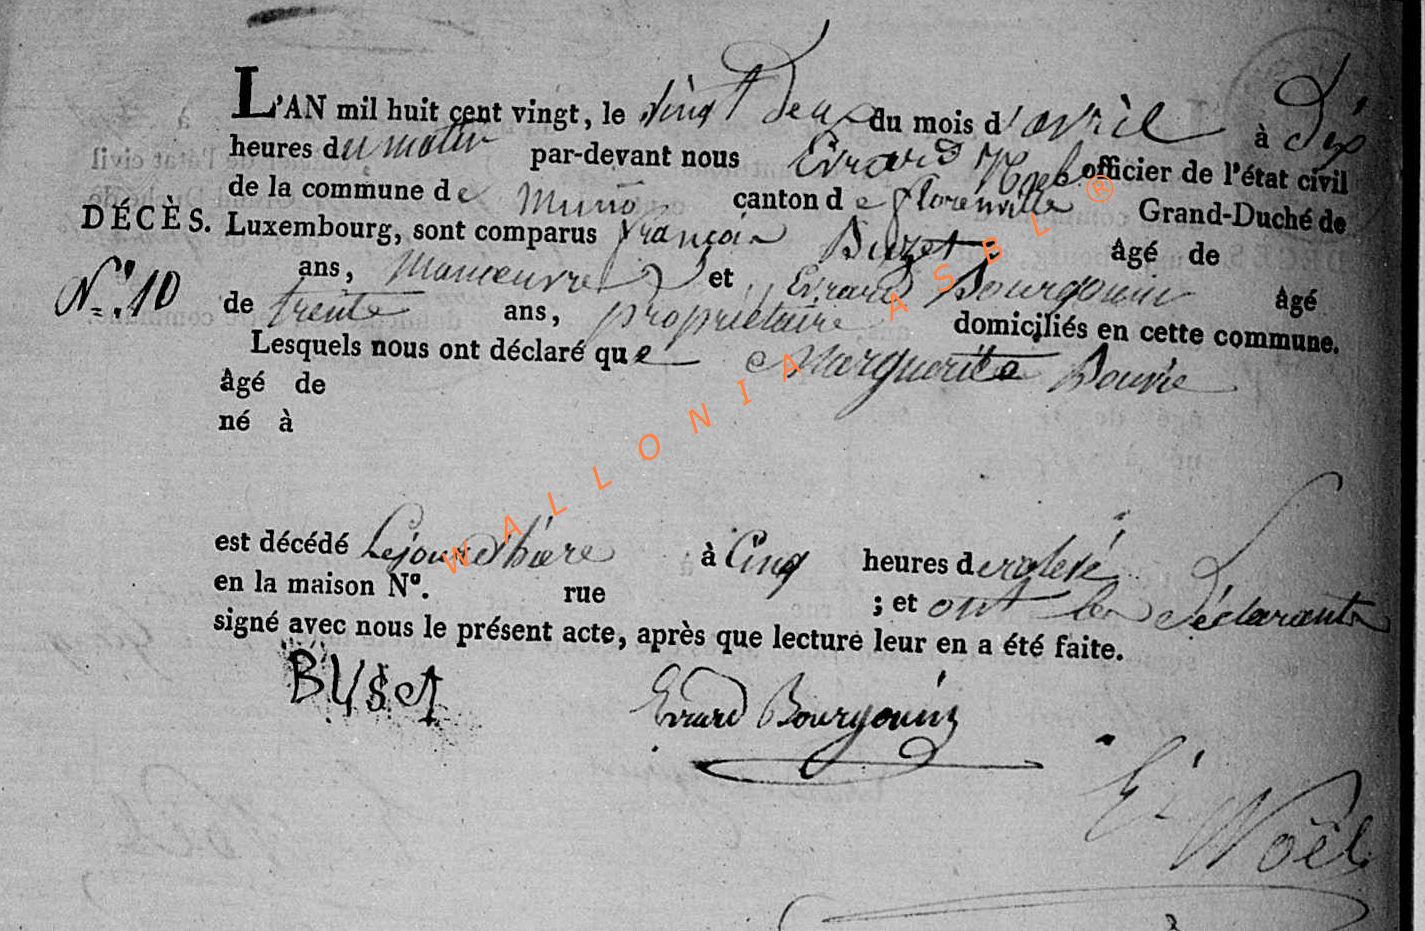 L'AN mil huit cent vingt, le vingt Deux du mois d'avril à Dix
heures du matin par-devant nous Evrard Noel officier de l'état civil
de la commune de Muno canton de florenville Grand-Duché de
DÉCÈS. Luxembourg, sont comparus françois Buzet âgé de
ans, Manoeuvre et Evrard Bourgouin âgé
N.° 10
de trente ans, propriétaire domiciliés en cette commune.
Lesquels nous ont déclaré que Marguerite
âgé de
né à
est décédé Lejour dhiere à Cinq heures de
en la maison N°. rue ; et ont les déclarants
signé avec nous le présent acte, après que lecture leur en a été faite.
BUSET Evrard Bourgouin
E. Noël
WALLONIA ASBL ®